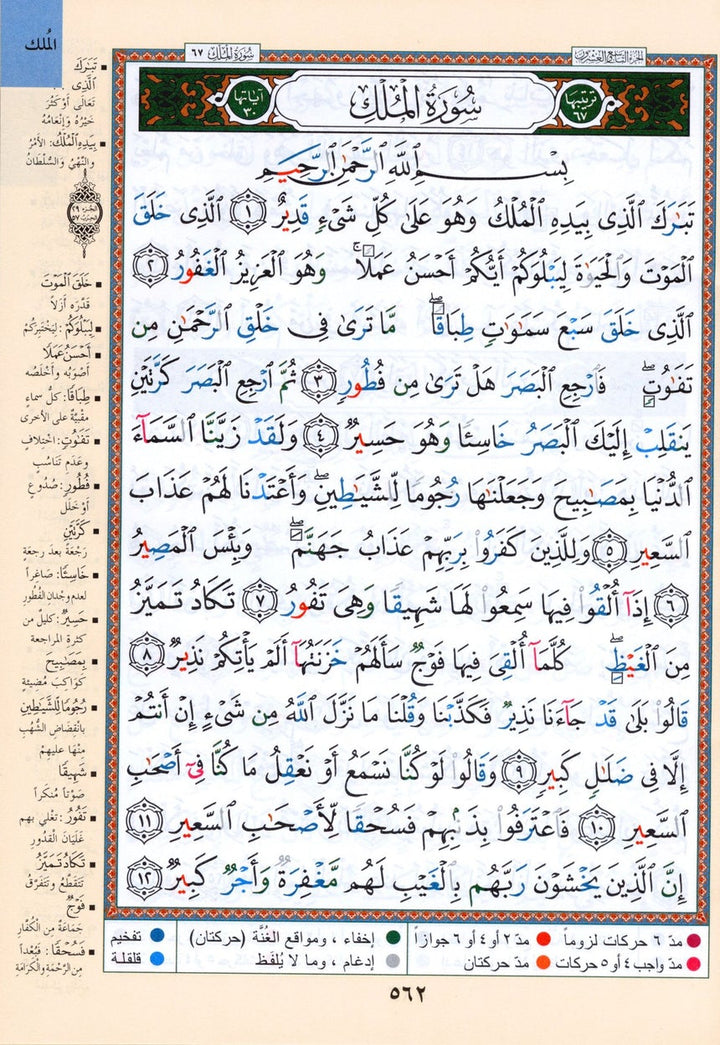 المُلك
الجزء التاسع والعشرون
سُورَةُ المُلْكِ ٦٧
ترتيبها ٦٧
سُورَةُ المُلْكِ
آياتها ٣٠
بِسْمِ ٱللَّهِ ٱلرَّحْمَٰنِ ٱلرَّحِيمِ
تَبَٰرَكَ ٱلَّذِى بِيَدِهِ ٱلْمُلْكُ وَهُوَ عَلَىٰ كُلِّ شَىْءٍ قَدِيرٌ ١ ٱلَّذِى خَلَقَ
ٱلْمَوْتَ وَٱلْحَيَوٰةَ لِيَبْلُوَكُمْ أَيُّكُمْ أَحْسَنُ عَمَلًا ۚ وَهُوَ ٱلْعَزِيزُ ٱلْغَفُورُ ٢
ٱلَّذِى خَلَقَ سَبْعَ سَمَٰوَٰتٍ طِبَاقًا ۖ مَّا تَرَىٰ فِى خَلْقِ ٱلرَّحْمَٰنِ مِن
تَفَٰوُتٍ ۖ فَٱرْجِعِ ٱلْبَصَرَ هَلْ تَرَىٰ مِن فُطُورٍ ٣ ثُمَّ ٱرْجِعِ ٱلْبَصَرَ كَرَّتَيْنِ
يَنقَلِبْ إِلَيْكَ ٱلْبَصَرُ خَاسِئًا وَهُوَ حَسِيرٌ ٤ وَلَقَدْ زَيَّنَّا ٱلسَّمَآءَ
ٱلدُّنْيَا بِمَصَٰبِيحَ وَجَعَلْنَٰهَا رُجُومًا لِّلشَّيَٰطِينِ ۖ وَأَعْتَدْنَا لَهُمْ عَذَابَ
ٱلسَّعِيرِ ٥ وَلِلَّذِينَ كَفَرُوا۟ بِرَبِّهِمْ عَذَابُ جَهَنَّمَ ۖ وَبِئْسَ ٱلْمَصِيرُ
٦ إِذَآ أُلْقُوا۟ فِيهَا سَمِعُوا۟ لَهَا شَهِيقًا وَهِىَ تَفُورُ ٧ تَكَادُ تَمَيَّزُ
مِنَ ٱلْغَيْظِ ۖ كُلَّمَآ أُلْقِىَ فِيهَا فَوْجٌ سَأَلَهُمْ خَزَنَتُهَآ أَلَمْ يَأْتِكُمْ نَذِيرٌ ٨
قَالُوا۟ بَلَىٰ قَدْ جَآءَنَا نَذِيرٌ فَكَذَّبْنَا وَقُلْنَا مَا نَزَّلَ ٱللَّهُ مِن شَىْءٍ إِنْ أَنتُمْ
إِلَّا فِى ضَلَٰلٍ كَبِيرٍ ٩ وَقَالُوا۟ لَوْ كُنَّا نَسْمَعُ أَوْ نَعْقِلُ مَا كُنَّا فِىٓ أَصْحَٰبِ
ٱلسَّعِيرِ ١٠ فَٱعْتَرَفُوا۟ بِذَنۢبِهِمْ فَسُحْقًا لِّأَصْحَٰبِ ٱلسَّعِيرِ ١١
إِنَّ ٱلَّذِينَ يَخْشَوْنَ رَبَّهُم بِٱلْغَيْبِ لَهُم مَّغْفِرَةٌ وَأَجْرٌ كَبِيرٌ ١٢
تَبَٰرَكَ
ٱلَّذِى
تَعَالَى أَوْ كَثُرَ
خَيْرُهُ وَإِنْعَامُهُ
بِيَدِهِ ٱلْمُلْكُ: الأمْرُ
والنَّهْيُ والسُّلْطَانُ
الجزء ٢٩
الحزب ٥٧
خَلَقَ ٱلْمَوْتَ
قَدَّرَهُ أَزَلاً
لِيَبْلُوَكُمْ: لِيَخْتَبِرَكُمْ
أَحْسَنُ عَمَلًا
أَصْوَبُهُ وأخْلَصُه
طِبَاقًا: كلُّ سماءٍ
مقبيَّةٌ على الأخرى
تَفَٰوُتٍ: اختِلافٍ
وعَدَمِ تَنَاسُبٍ
فُطُورٍ: صُدُوعٍ
أوْ خَلَلٍ
كَرَّتَيْنِ
رَجْعَةً بعدَ رجعةٍ
خَاسِئًا: صَاغِراً
لعدم وِجْدانِ الفُطُورِ
حَسِيرٌ: كليلٌ من
كثرة المراجعة
بِمَصَٰبِيحَ
كواكبَ مُضيئةٍ
رُجُومًا لِّلشَّيَٰطِينِ
بانقِضاضِ الشُّهُبِ
منْهَا عليهمْ
شَهِيقًا
صَوْتاً مُنكَراً
تَفُورُ: تَغْلِي بهم
غَلَيَانَ القُدُورِ
تَكَادُ تَمَيَّزُ
تتَقَطَّعُ وتَتَفَرَّقُ
فَوْجٌ
جَمَاعَةٌ مِن الكُفَّارِ
فَسُحْقًا: فَبُعْداً
مِنَ الرَّحْمَةِ والكَرَامَةِ
مدّ ٦ حركات لزوماً مدّ ٢ أو ٤ أو ٦ جوازاً إخفاء ، ومواقع الغُنَّة (حركتان) تفخيم
مدّ واجب ٤ أو ٥ حركات مدّ حركتان إدغام ، وما لا يُلفَظ قلقلة
٥٦٢